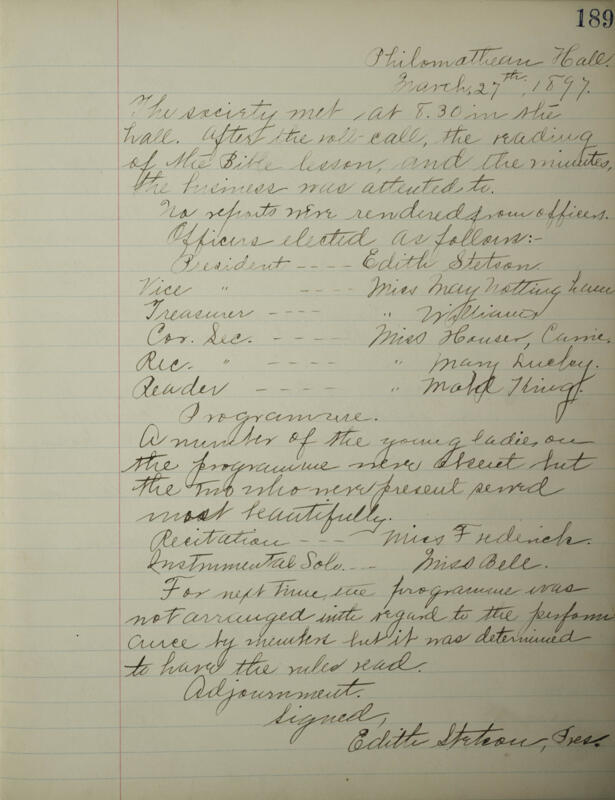 189
Philomathean Hall.
March, 27th, 1897.
The society met at 8.30 in the
hall. After the roll-call, the reading
of the Bible lesson, and the minutes,
the business was attented to.
No reports were rendered from officers.
Officers elected as follows:-
President ---- Edith Stetson.
Vice " ---- Miss May Nottingham
Treasurer ---- " Williams
Cor. Sec. ---- Miss Houser, Carrie.
Rec. " ---- " Mary
Reader ---- " King.
Programme.
A number of the young ladies on
the programme were absent but
the two who were present served
most beautifully.
Recitation --- Miss Frederick.
Instrumental Solo --- Miss Bell.
For next time, the programme was
not arranged with regard to the perform
ance by members but it was determined
to have the rules read.
Adjournment.
Signed,
Edith Stetson, Pres.